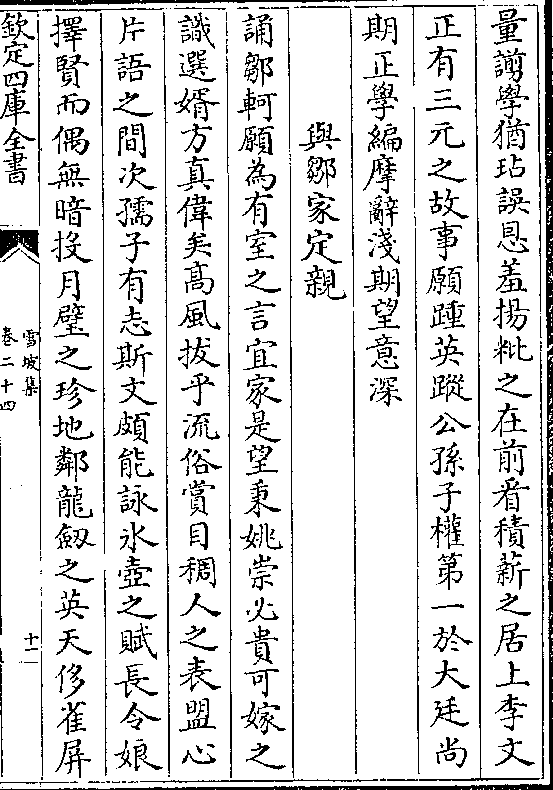 量謭學猶玷誤恩羞揚粃之在前看積薪之居上李文
正有三元之故事願踵英蹤公孫子權第一於大廷尚
期正學編摩辭淺期望意深
與鄒家定親
誦鄒軻願為有室之言宜家是望秉姚崇必貴可嫁之
識選婿方真偉矣高風拔乎流俗賞目稠人之表盟心
片語之間次孺子有志斯文頗能詠氷壺之賦長令娘
擇賢而偶無暗投月璧之珍地鄰龍劔之英天侈雀屏
欽定四庫全書
雪坡集
卷二十四
十一